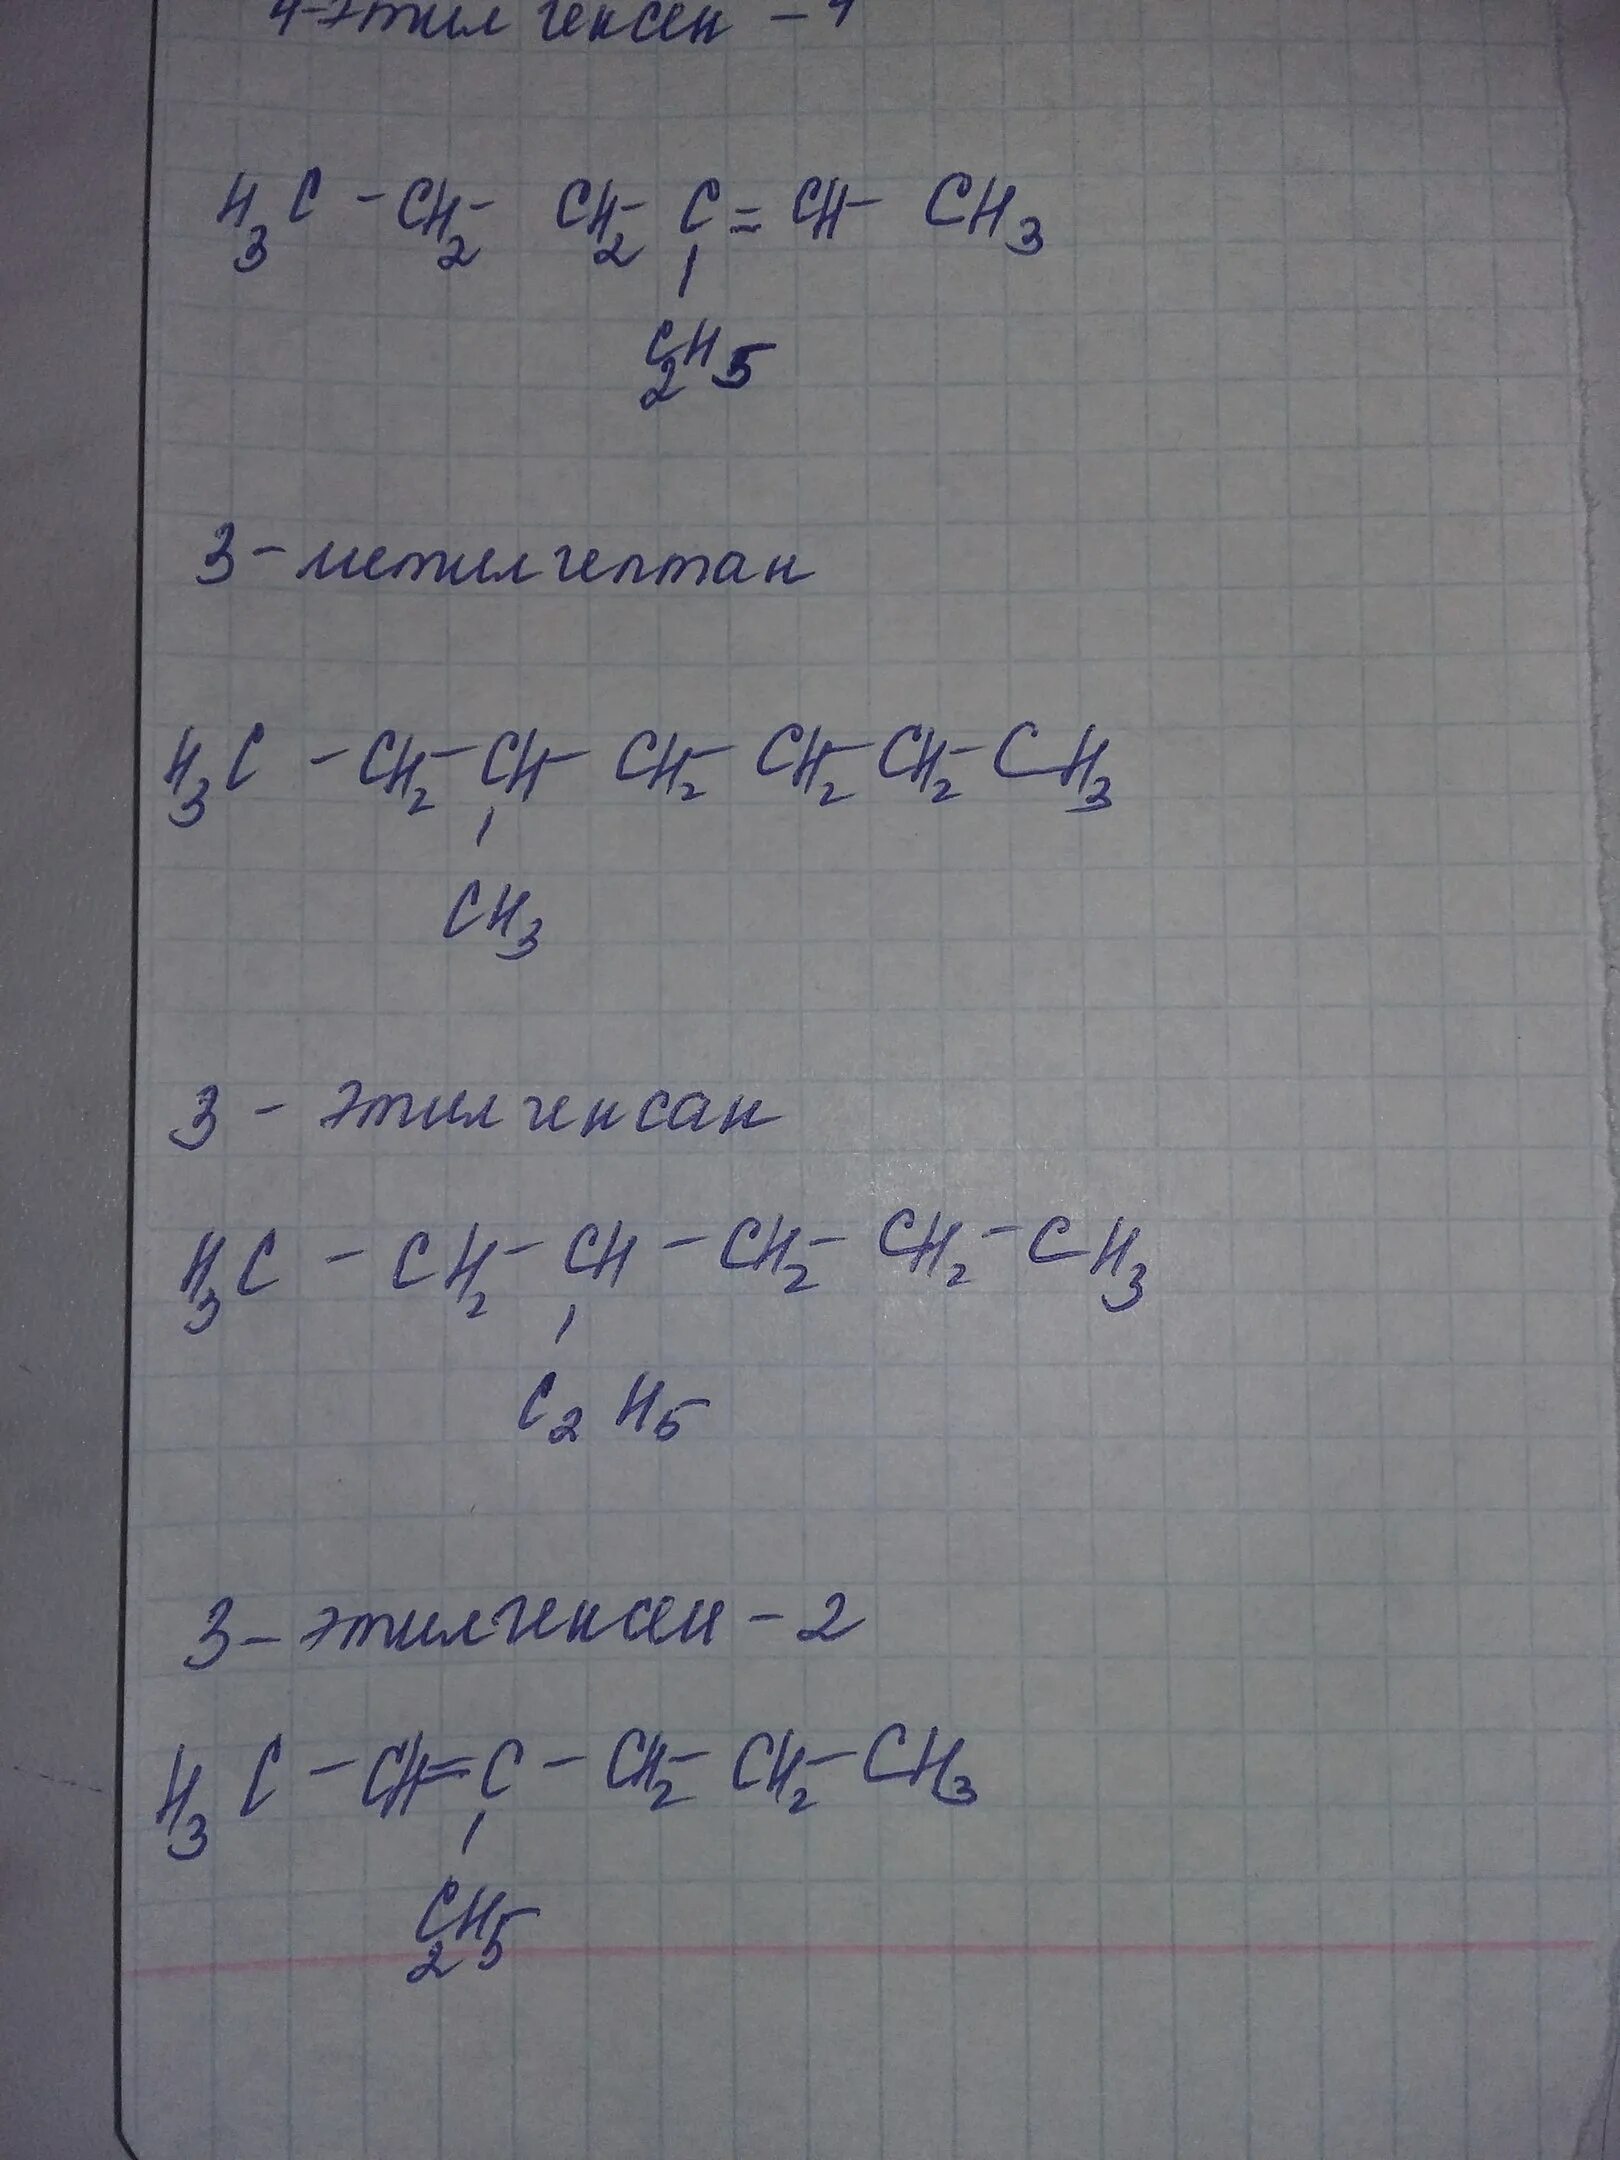 4-этилгексен-4
H3C-CH2- CH2-C=CH-CH3
C2H5
3-метилгептан
H3C-CH2-CH-CH2-CH2-CH2-CH3
CH3
3-этилгексан
H3C-CH2-CH-CH2-CH2-CH3
C2H5
3-этилгексен-2
H3C-CH=C-CH2-CH2-CH3
C2H5